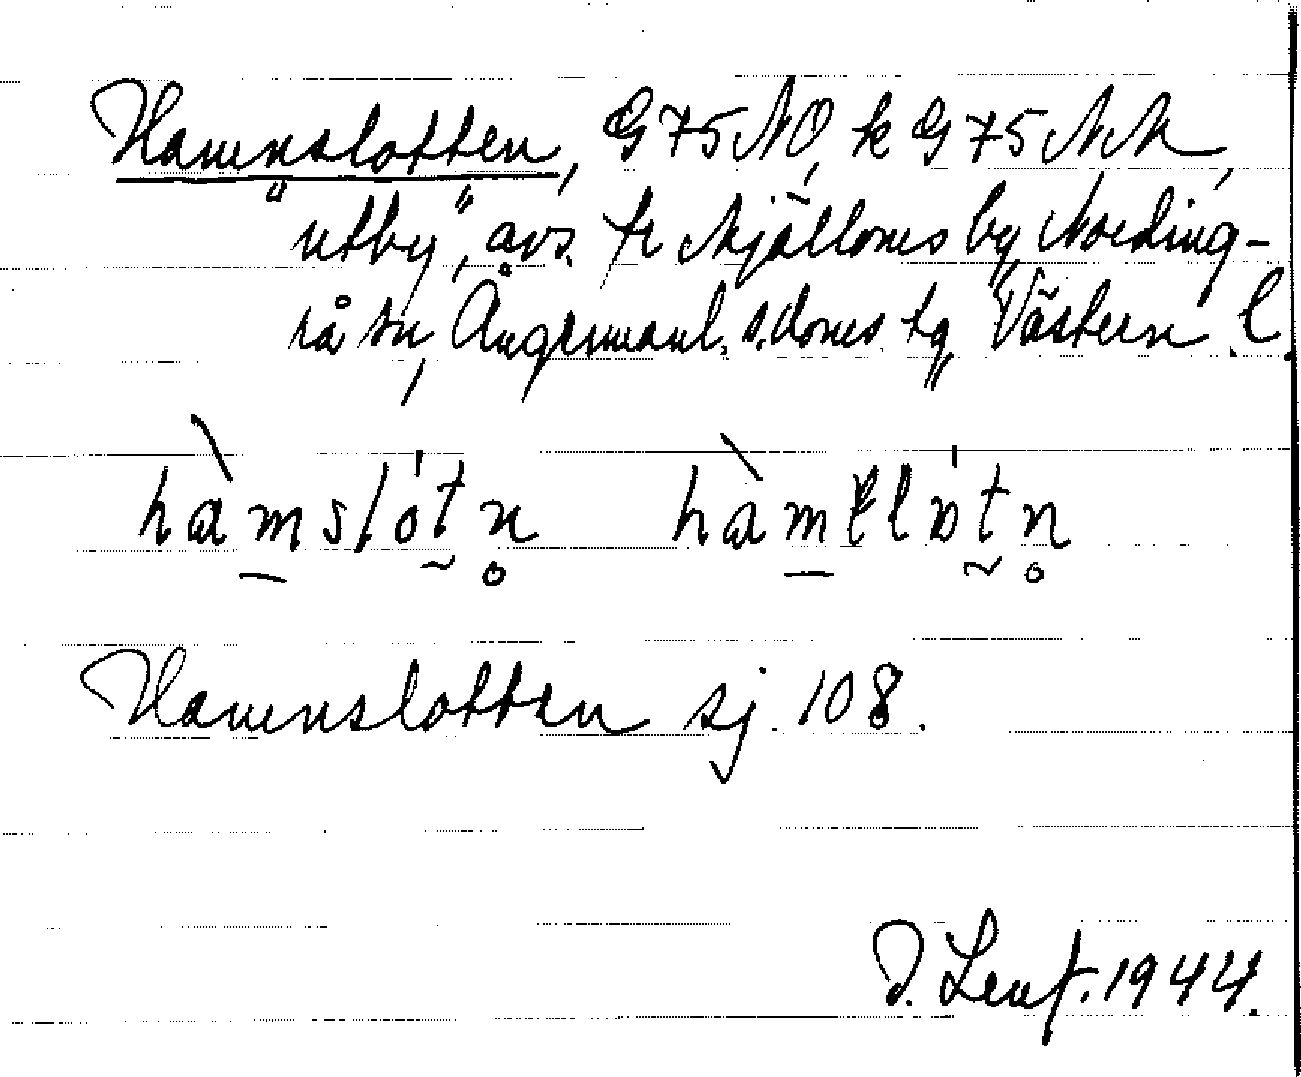 Hamnslotten, G 75 NO, k G 75 NN,
"utby", avs. fr Mjälloms by, Nording-
rå sn, Ångermanl. s.
hàmslót̰n̥ hàmłlɒ́t̰n̥
Hamnslotten sj. 108.
1944.